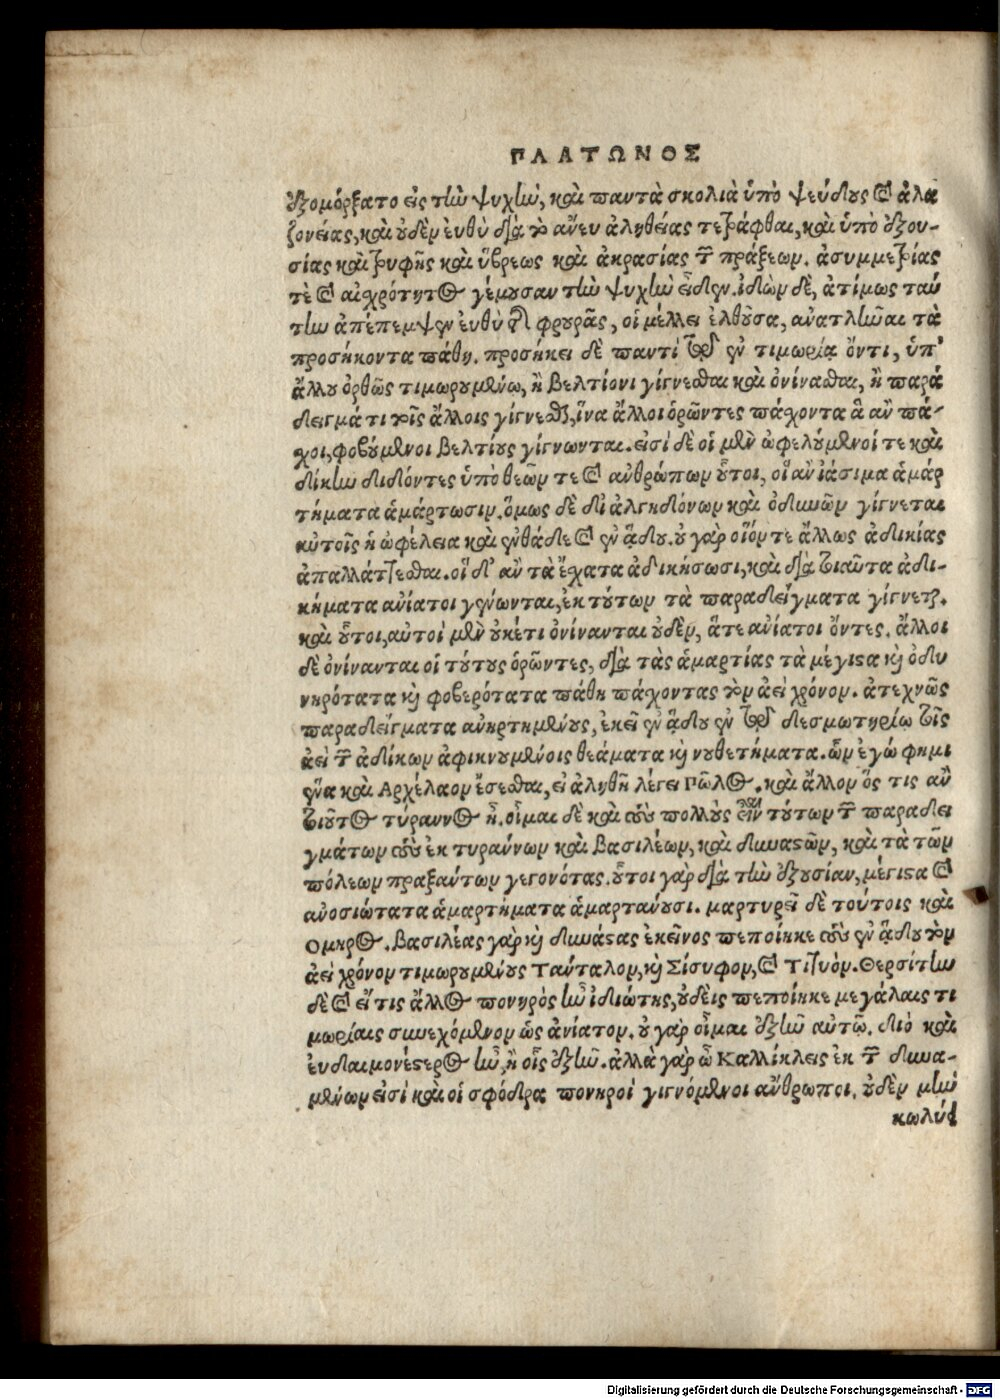 ΠΛΑΤΩΝΟΣ
ἐξομόρξατο εἰς τὴν ψυχὴν, καὶ παντὰ σκολιὰ ὑπὸ ψεύδους καὶ ἀλα
ζονείας, καὶ οὐδὲν εὐθὺ διὰ τὸ ἄνευ ἀληθείας τετράφθαι, καὶ ὑπὸ ἐξου-
σίας καὶ τρυφῆς καὶ ὕβρεως καὶ ἀκρασίας τῶν πράξεων. ἀσυμμετρίας
τὲ καὶ αἰσχρότητος γέμουσαν τὴν ψυχὴν εἶδεν. ἰδὼν δὲ, ἀτίμως ταύ
την ἀπέπεμψεν εὐθὺ τῆς φρουρᾶς, οἷ μέλλει ἐλθοῦσα, ἀνατλῆναι τὰ
προσήκοντα πάθη. προσήκει δὲ παντὶ τῷ ἐν τιμωρίᾳ ὄντι, ὑπ'
ἄλλου ὀρθῶς τιμωρουμένῳ, ἢ βελτίονι γίγνεσθαι καὶ ὀνίνασθαι, ἢ παρά
δειγμά τι τοῖς ἄλλοις γίγνεσθαι, ἵνα ἄλλοι ὁρῶντες πάσχοντα ἃ ἂν πά-
σχοι, φοβούμενοι βελτίους γίγνωνται. εἰσὶ δὲ οἱ μὲν ὠφελούμενοί τε καὶ
δίκην διδόντες ὑπὸ θεῶν τε καὶ ἀνθρώπων οὗτοι, οἳ ἂν ἰάσιμα ἁμάρ
τήματα ἁμάρτωσιν. ὅμως δὲ δι' ἀλγηδόνων καὶ ὀδυνῶν γίγνεται
αὐτοῖς ἡ ὠφέλεια καὶ ἐνθάδε καὶ ἐν ᾅδου. οὐ γὰρ οἷόν τε ἄλλως ἀδικίας
ἀπαλλάττεσθαι. οἳ δ' ἂν τὰ ἔσχατα ἀδικήσωσι, καὶ διὰ τοιαῦτα ἀδι-
κήματα ἀνίατοι γένωνται, ἐκ τούτων τὰ παραδείγματα γίγνεται.
καὶ οὗτοι, αὐτοὶ μὲν οὐκέτι ὀνίνανται οὐδὲν, ἅτε ἀνίατοι ὄντες. ἄλλοι
δὲ ὀνίνανται οἱ τούτους ὁρῶντες, διὰ τὰς ἁμαρτίας τὰ μέγιστα καὶ ὀδυ
νηρότατα καὶ φοβερότατα πάθη πάσχοντας τὸν ἀεὶ χρόνον. ἀτεχνῶς
παραδείγματα ἀνηρτημένους, ἐκεῖ ἐν ᾅδου ἐν τῷ δεσμωτηρίῳ τοῖς
ἀεὶ τῶν ἀδίκων ἀφικνουμένοις θεάματα καὶ νουθετήματα. ὧν ἐγώ φημι
ἕνα καὶ Αρχέλαον ἔσεσθαι, εἰ ἀληθῆ λέγει Πῶλος. καὶ ἄλλον ὅς τις ἂν
τοιοῦτος τύραννος ᾖ. οἶμαι δὲ καὶ τοὺς πολλοὺς εἶναι τούτων τῶν παραδει
γμάτων τοὺς ἐκ τυράννων καὶ βασιλέων, καὶ δυναστῶν, καὶ τὰ τῶν
πόλεων πραξάντων γεγονότας. οὗτοι γὰρ διὰ τὴν ἐξουσίαν, μέγιστα καὶ
ἀνοσιώτατα ἁμαρτήματα ἁμαρτάνουσι. μαρτυρεῖ δὲ τούτοις καὶ
Ομηρος. βασιλέας γὰρ καὶ δυνάστας ἐκεῖνος πεποίηκε τοὺς ἐν ᾅδου τὸν
ἀεὶ χρόνον τιμωρουμένους Τάνταλον, καὶ Σίσυφον, καὶ Τιτυὸν. Θερσίτην
δὲ καὶ εἴ τις ἄλλος πονηρὸς ἦν ἰδιώτης, οὐδεὶς πεποίηκε μεγάλαις τι
μωρίαις συνεχόμενον ὡς ἀνίατον. οὐ γὰρ οἶμαι ἐξῆν αὐτῷ. διὸ καὶ
εὐδαιμονέστερος ἦν, ἢ οἷς ἐξῆν. ἀλλὰ γὰρ ὦ Καλλίκλεις ἐκ τῶν δυνα-
μένων εἰσὶ καὶ οἱ σφόδρα πονηροὶ γιγνόμενοι ἄνθρωποι. οὐδὲν μὴν
κωλύει